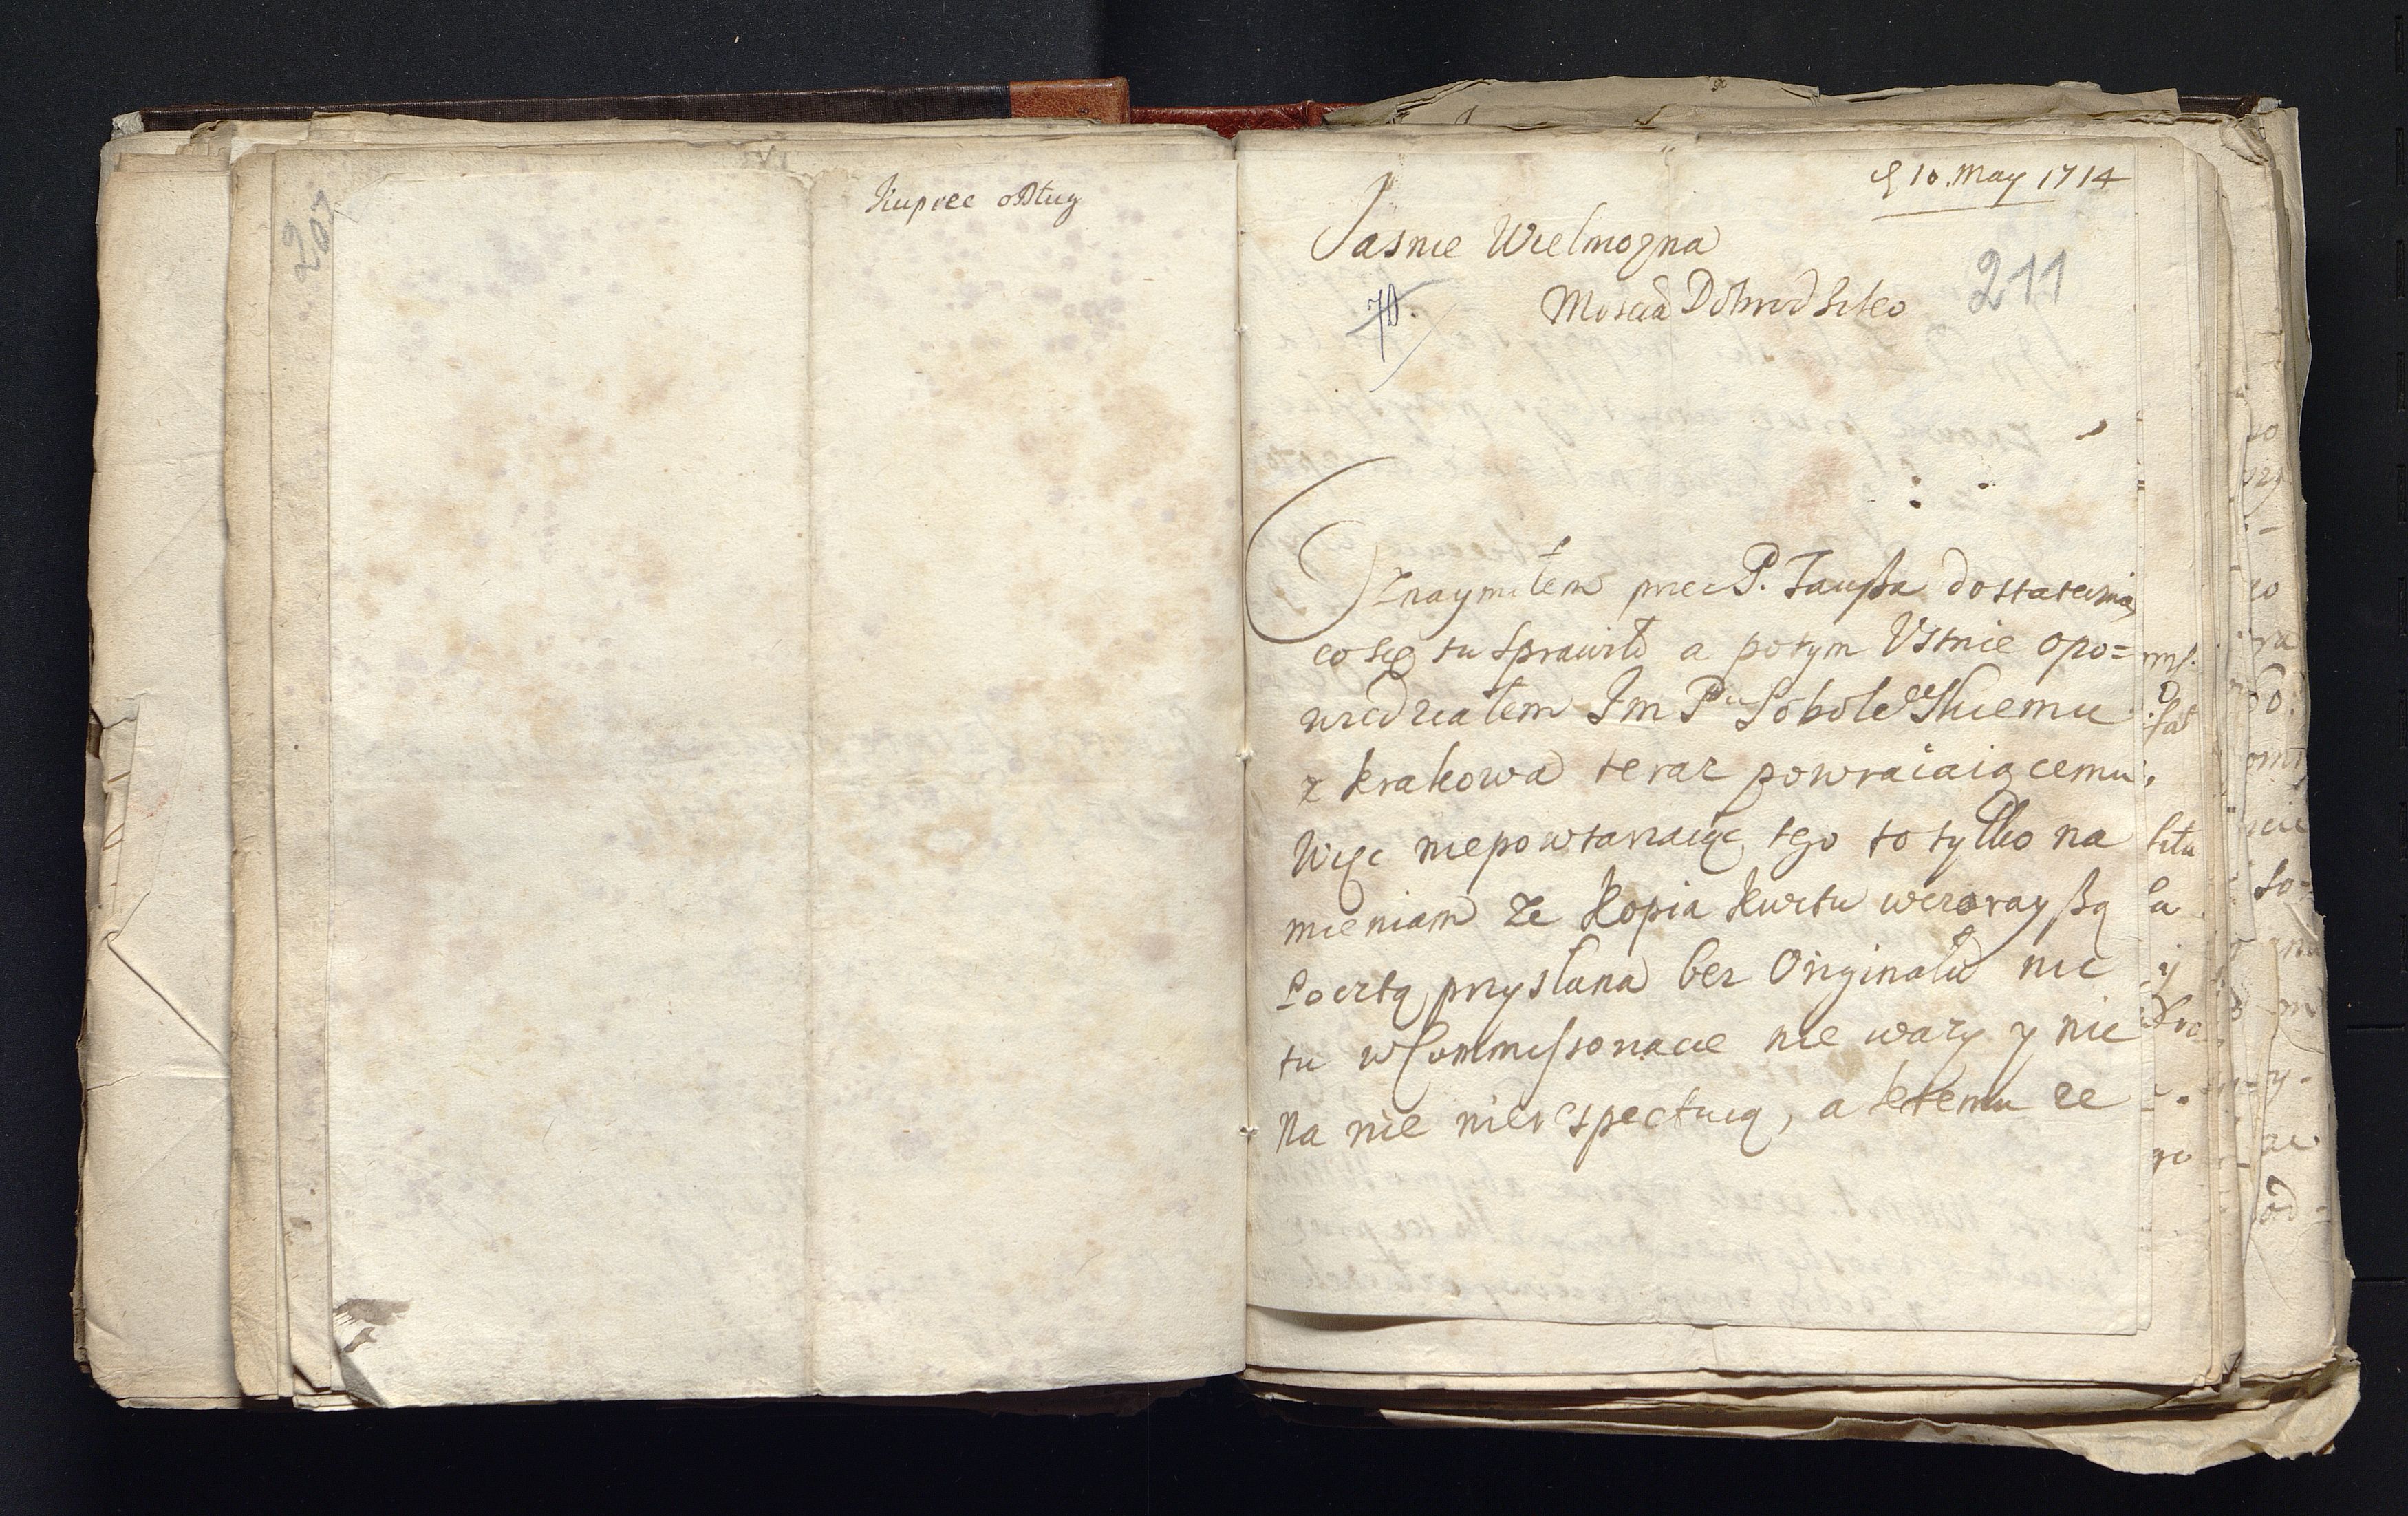 207
Kupiec o dług
10. May 1714
Jasnie Wielmozna
211
70.
Moscia Dobrodziko
Oznaymiłem przez P. Jaußa dostatecznie
co się tu sprawiło a potym Ustnie opo=
wiedziałem Im Pu Sobolewskiemu
z krakowa teraz powracaiącemu,
Więc niepowtarzaiąc tego to tylko na
mieniam że Kopia kwitu wczorayßą
Pocztą przysłana bez Originału nic
tu w Commissoriacie nie wazy y nic
Na nie nierespectuią, a ktemu ze